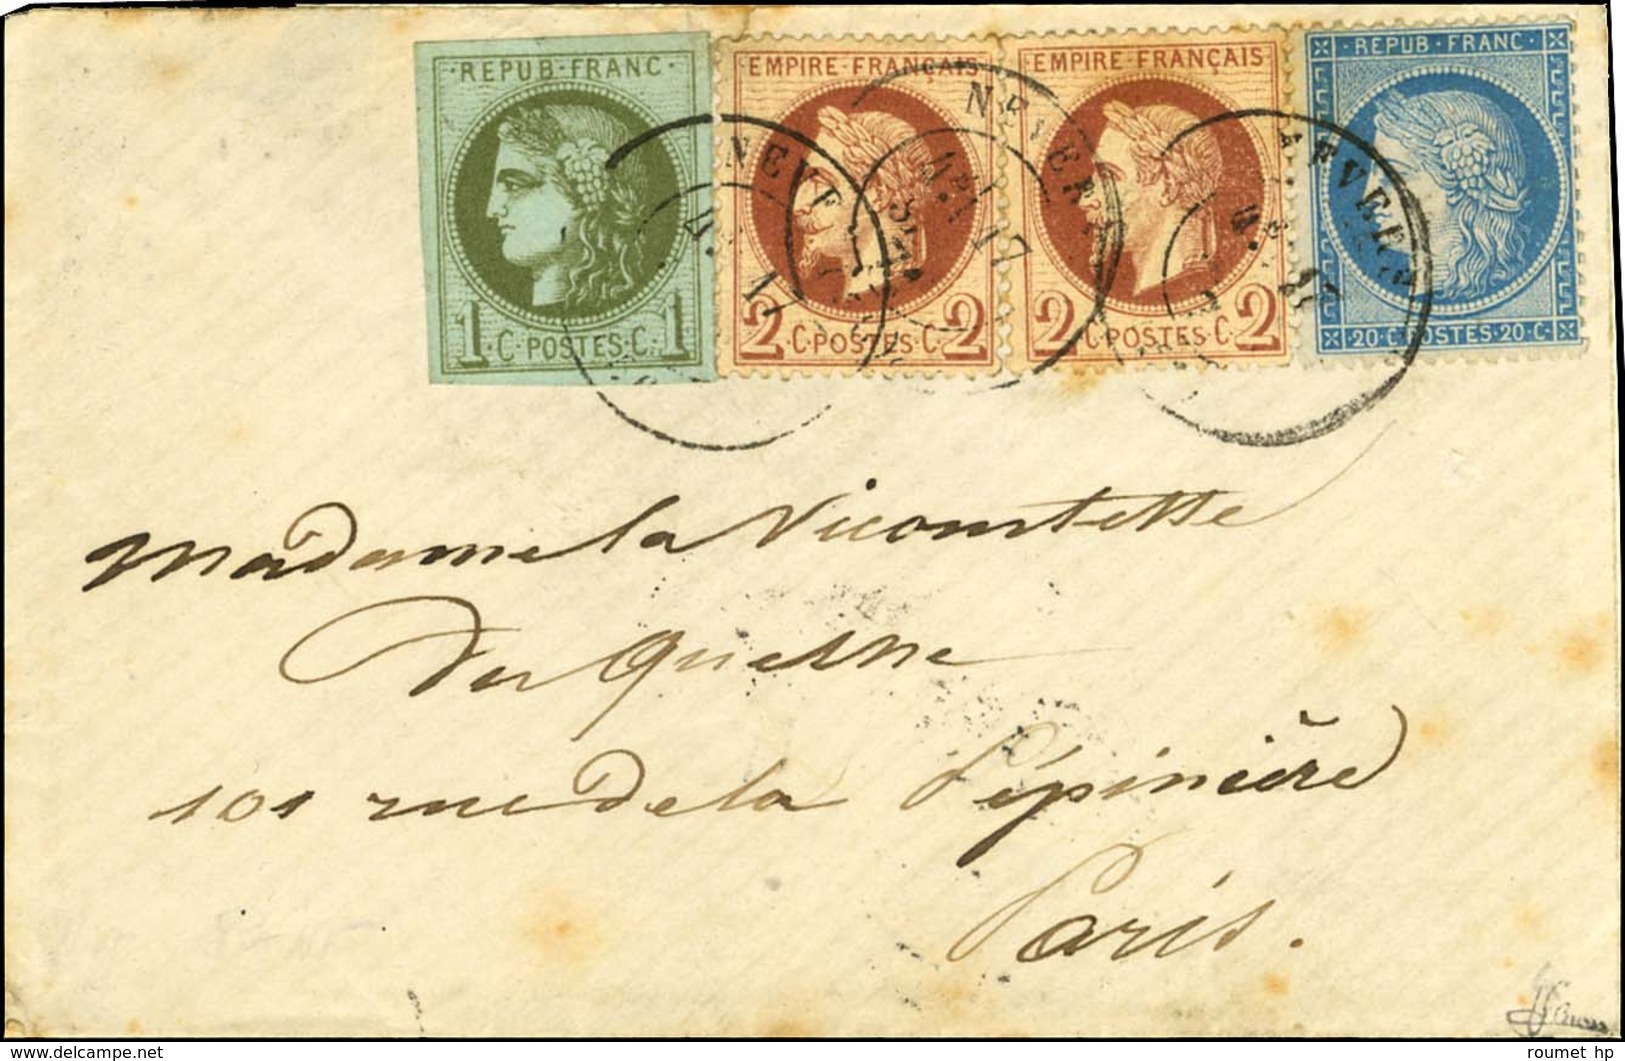 ·REPUB·FRANC·
1·C·POSTES·C·1
EMPIRE·FRANÇAIS
2·C·POSTES·C·2
EMPIRE·FRANÇAIS
2·C·POSTES·C·2
·REPUB·FRANC·
20·C·POSTES·20·C·
17
Madame la Vicomtette
Du Quesne
101 rue de la Pépinière
Paris.
roumet hp